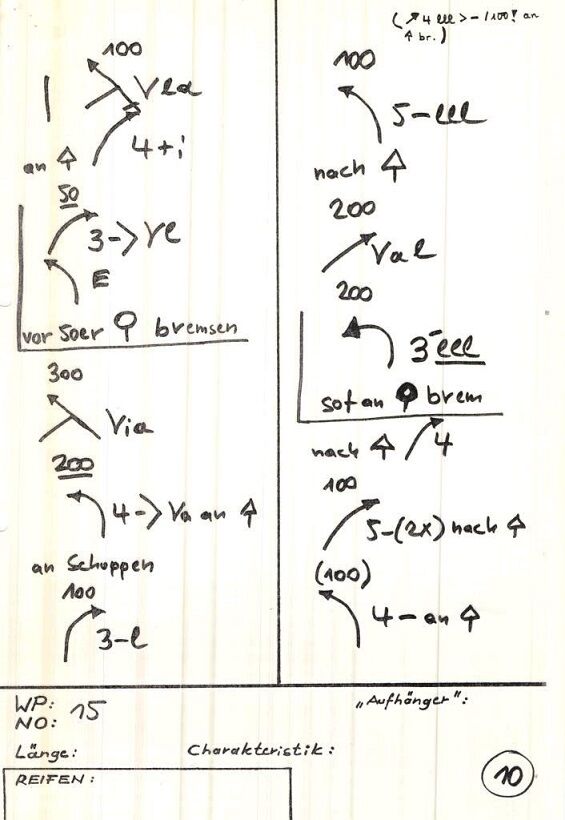 (↗ 4 lll >- /100! an
↑ br.)
100
Vla
4+i
an ↑
50
3->Vl
E
vor 50er bremsen
300
Via
200
4->Va an ↑
an Schuppen
100
3-l
100
5-lll
nach ↑
200
Val
200
3-lll
sofan brem
nach ↑ 4
100
5-(2x) nach ↑
(100)
4-an ↑
WP: 15
NO:
„Aufhänger":
Länge:
Charakteristik:
REIFEN:
10